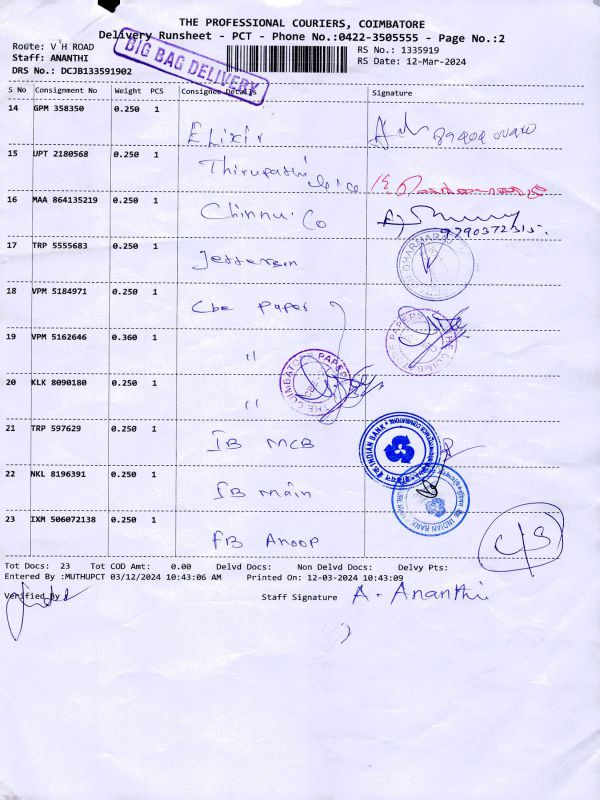 THE PROFESSIONAL COURIERS, COIMBATORE
Delivery Runsheet - PCT - Phone No.:0422-3505555 - Page No.:2
Route: V H ROAD
Staff: ANANTHI
DRS No.: DCJB133591902
BIG BAG DELIVERY
RS No.: 1335919
RS Date: 12-Mar-2024
S No Consignment No Weight PCS Consignee Details Signature
14 GPM 358350 0.250 1 Elixir
15 UPT 2180568 0.250 1 Thirupathi
16 MAA 864135219 0.250 1 Chinnu. Co
9790372315.
17 TRP 5555683 0.250 1 Jefferson
18 VPM 5184971 0.250 1 Cbe Paper
19 VPM 5162646 0.360 1 "
20 KLK 8090180 0.250 1 "
21 TRP 597629 0.250 1 IB MCB
22 NKL 8196391 0.250 1 IB Main
23 IXM 506072138 0.250 1 FB Anoop
INDIAN BANK
INDIAN BANK
Tot Docs: 23 Tot COD Amt: 0.00 Delvd Docs: Non Delvd Docs: Delvy Pts:
Entered By :MUTHUPCT 03/12/2024 10:43:06 AM Printed On: 12-03-2024 10:43:09
Verified By
Staff Signature A. Ananthi